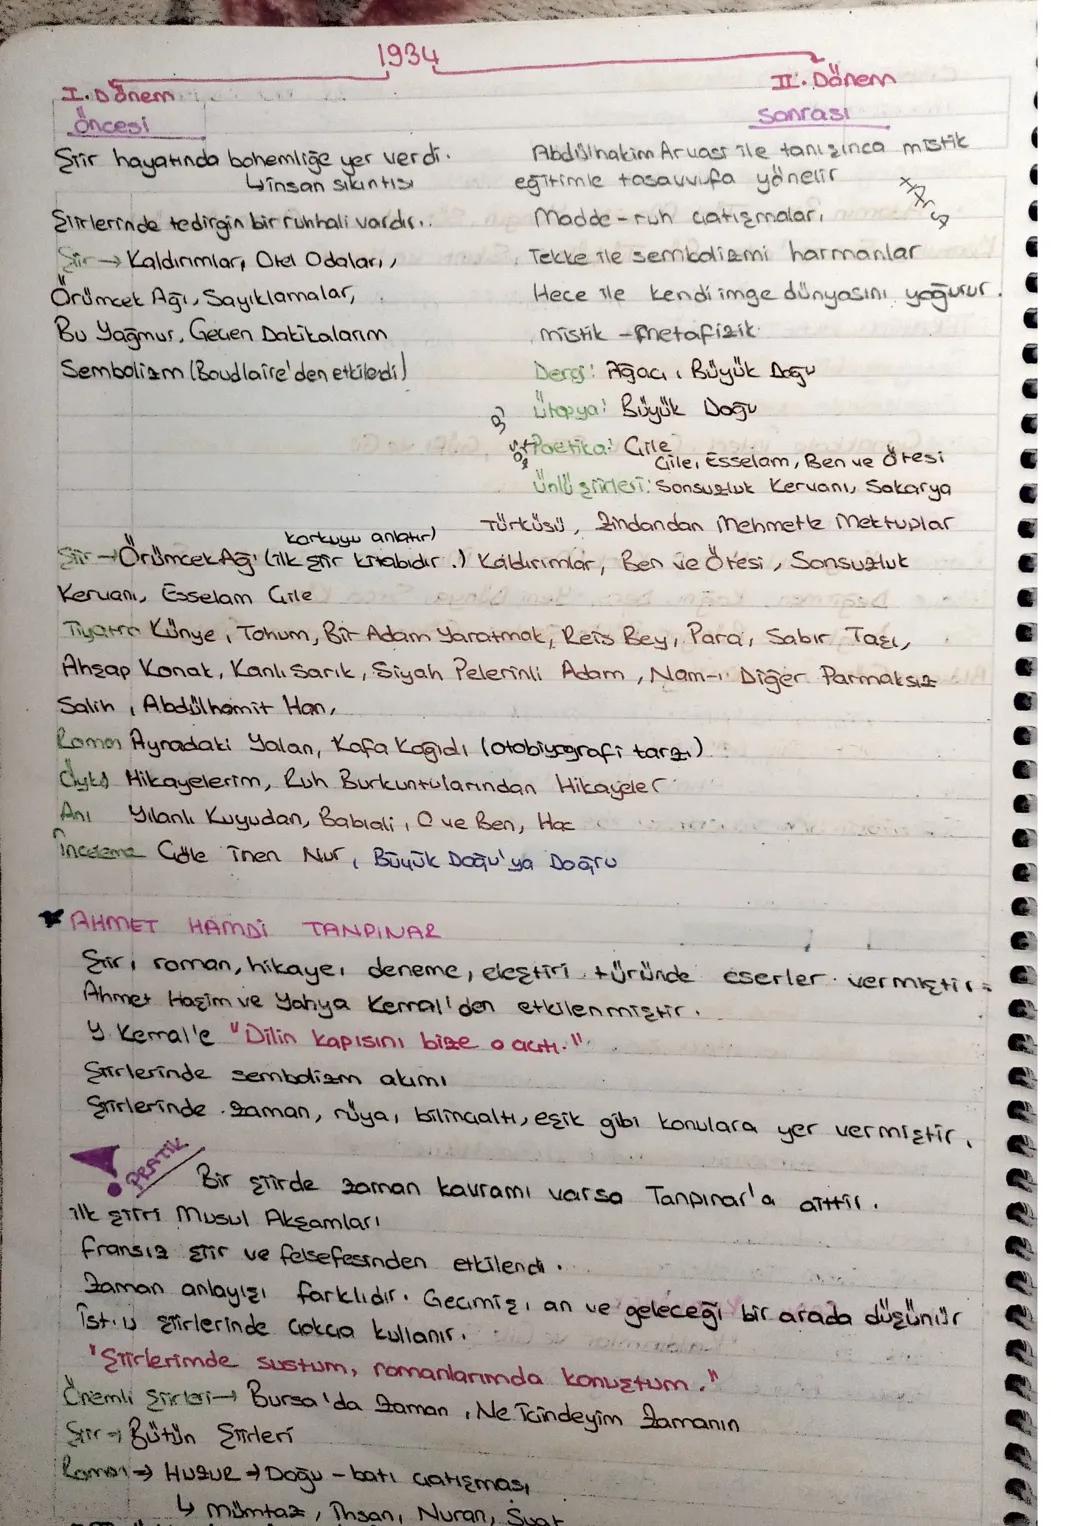 1934
I. Dönem
öncesi
Şiir hayatında bohemliğe yer verdi.
↳insan sıkıntısı
Şiirlerinde tedirgin bir ruh hali vardır.
Şiir → Kaldırımlar, Otel Odaları,
Örümcek Ağı, Sayıklamalar,
Bu Yağmur, Geçen Dakikalarım
Sembolizm (Boudlaire'den etkiledi)
II. Dönem
Sonrası
Abdülhakim Arvasi ile tanışınca mistik
eğitimle tasavvufa yönelir
Madde-ruh çatışmaları
Tekke ile sembolizmi harmanlar
Hece ile kendi imge dünyasını yoğurur.
mistik - metafizik
Dergi: Ağaç, Büyük Doğu
Ütopya: Büyük Doğu
Poetika: Çile
Çile, Esselam, Ben ve Ötesi
Ünlü şiirleri: Sonsuzluk Kervanı, Sakarya
Türküsü, Zindandan Mehmet'e Mektuplar
korkuyu anlatır)
Şiir → Örümcek Ağı (ilk şiir kitabıdır.) Kaldırımlar, Ben ve Ötesi, Sonsuzluk
Kervanı, Esselam Çile
Tiyatro Künye, Tohum, Bir Adam Yaratmak, Reis Bey, Para, Sabır Taşı,
Ahşap Konak, Kanlı Sarık, Siyah Pelerinli Adam, Nam-ı Diğer Parmaksız
Salih, Abdülhamit Han,
Roman Aynadaki Yalan, Kafa Kağıdı (otobiyografi tarzı)
Öykü Hikayelerim, Ruh Burkuntularından Hikayeler
Anı Yılanlı Kuyudan, Babıali, O ve Ben, Hac
İnceleme Çöle İnen Nur, Büyük Doğu'ya Doğru
AHMET HAMDİ TANPINAR
Şiir, roman, hikaye, deneme, eleştiri türünde eserler vermiştir.
Ahmet Haşim ve Yahya Kemal'den etkilenmiştir.
Y. Kemal'e "Dilin kapısını bize o açtı."
Şiirlerinde sembolizm akımı
Şiirlerinde zaman, rüya, bilinçaltı, eşik gibi konulara yer vermiştir.
! PRATİK
Bir şiirde zaman kavramı varsa Tanpınar'a aittir.
ilk şiiri Musul Akşamları
Fransız şiir ve felsefesinden etkilendi.
Zaman anlayışı farklıdır. Geçmiş, an ve geleceği bir arada düşünür
şiirlerinde çokça kullanır.
"Şiirlerimde sustum, romanlarımda konuştum."
Önemli Şiirleri → Bursa'da Zaman, Ne İçindeyim Zamanın
Şiir → Bütün Şiirleri
Roman → HUZUR → Doğu-batı çatışması,
↳ Mümtaz, İhsan, Nuran, Suat